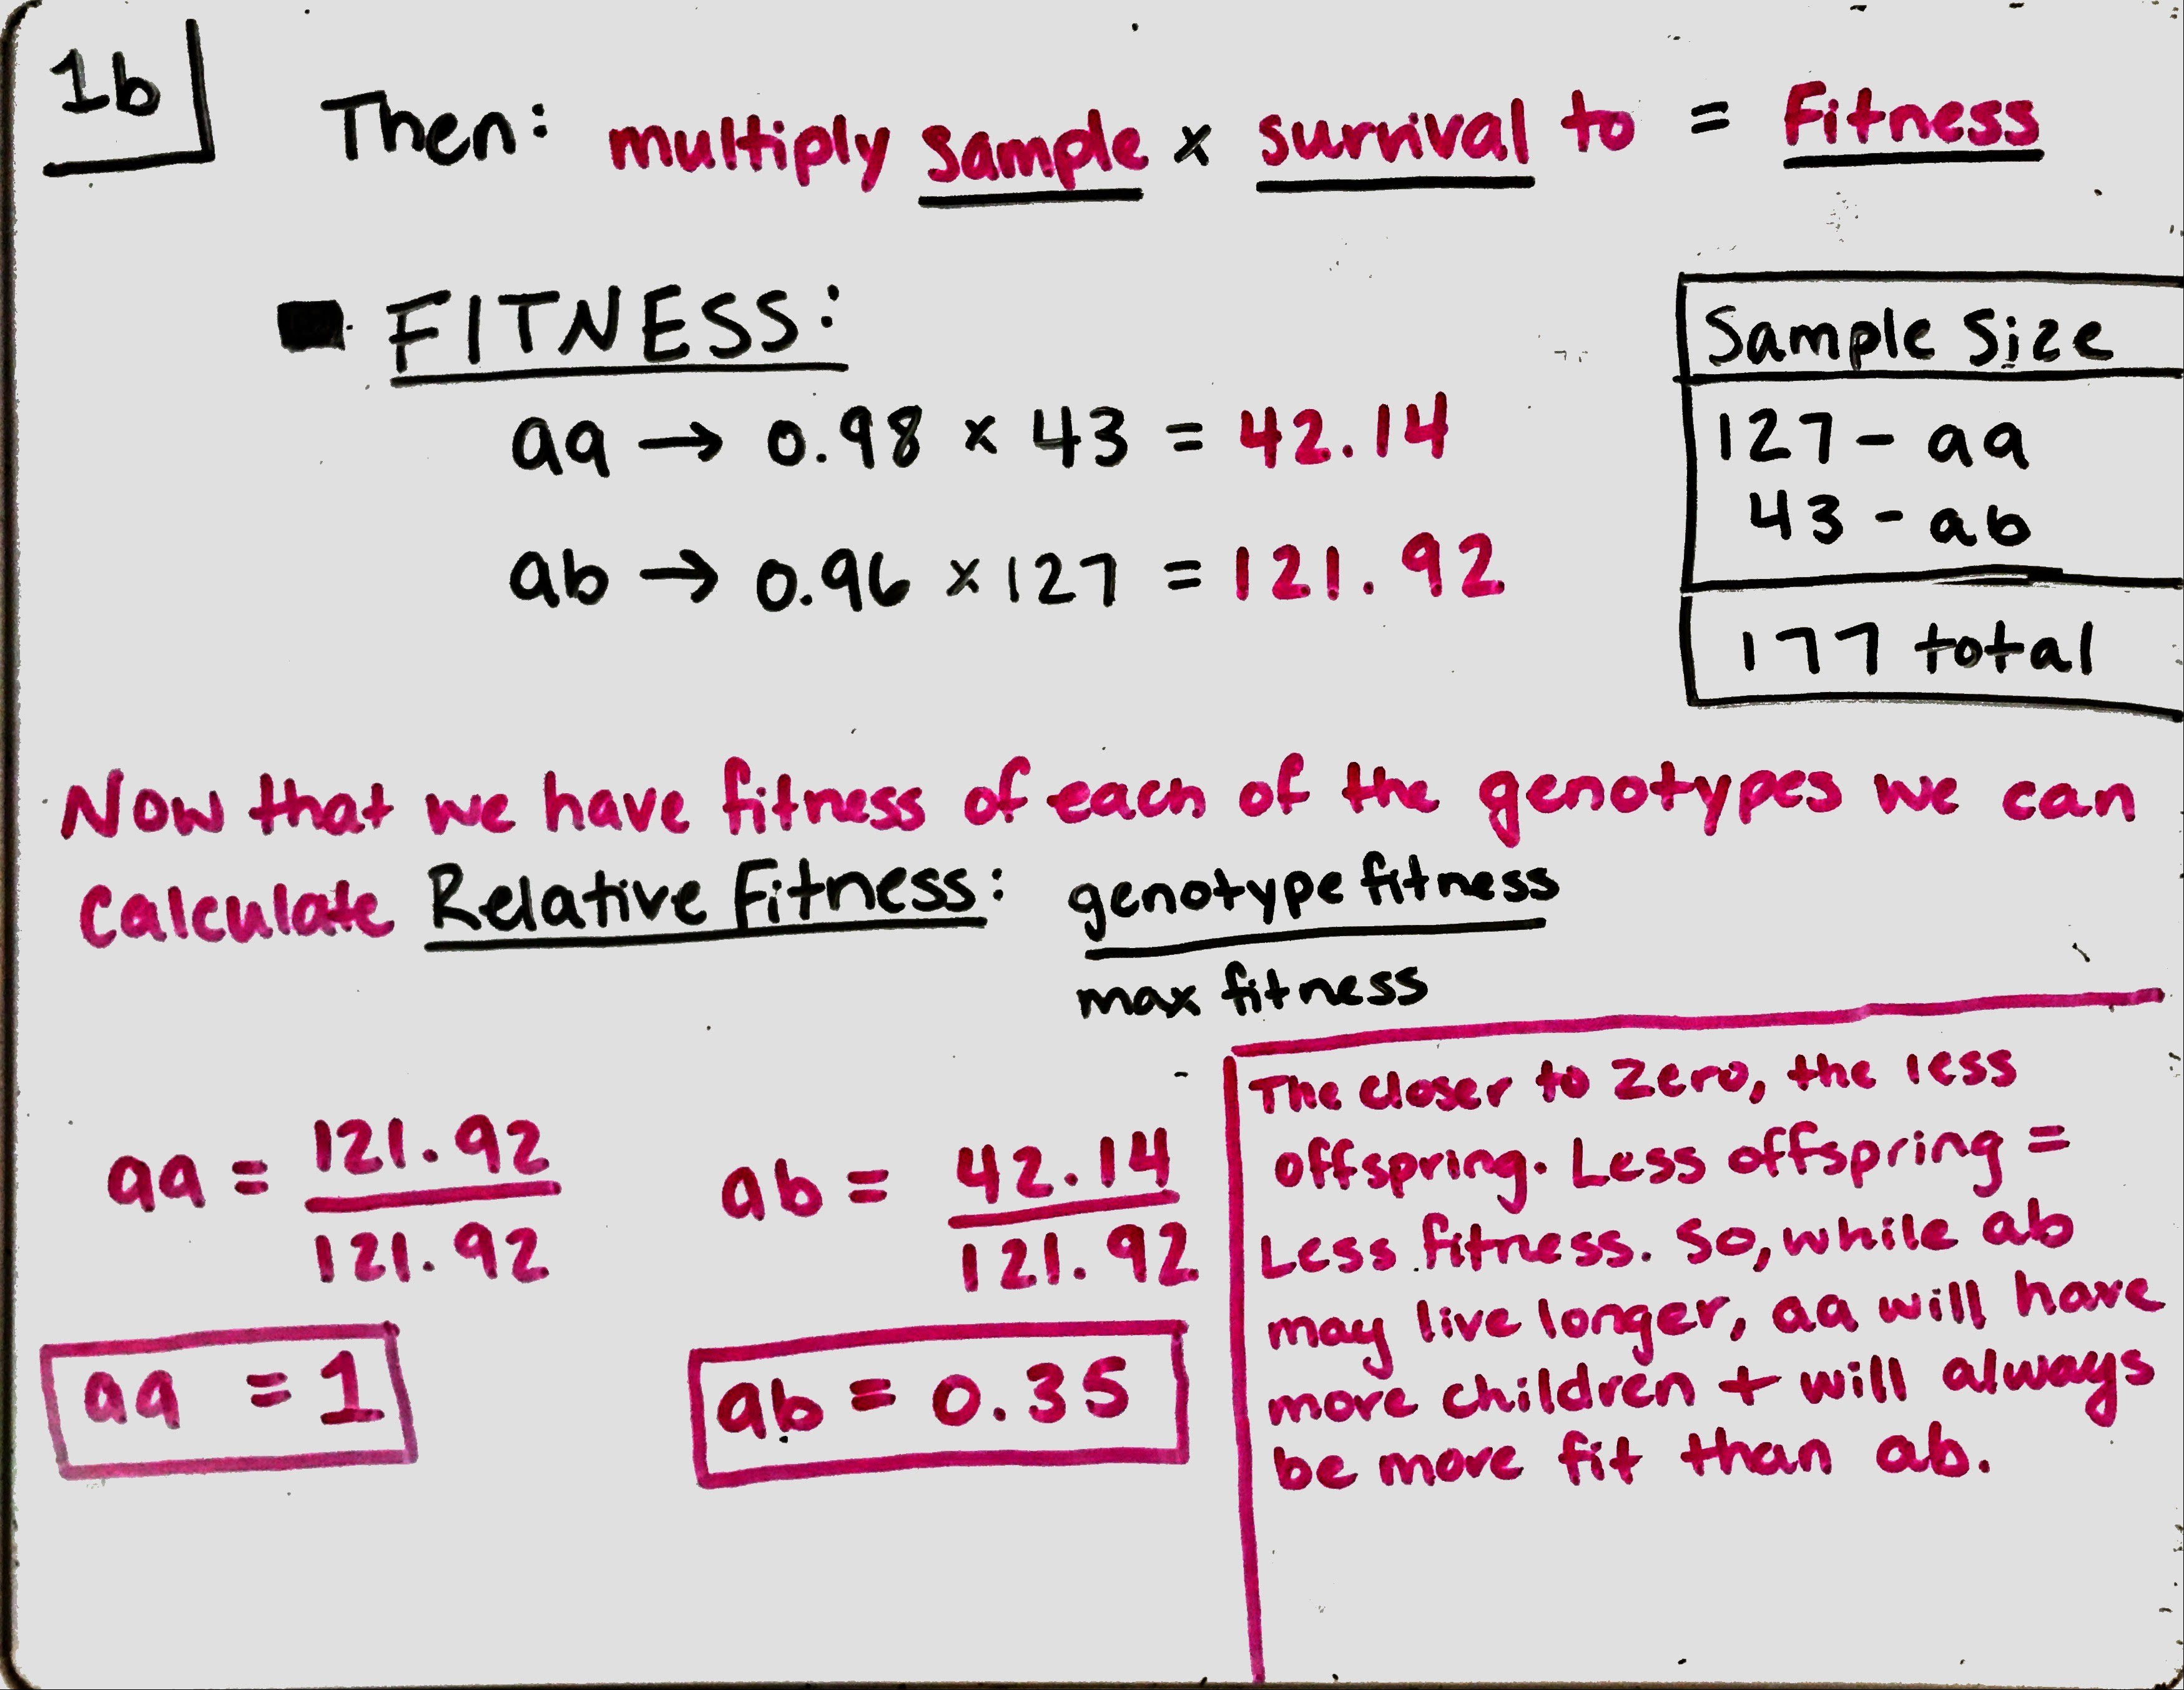 1b
Then: multiply sample x survival to = Fitness
FITNESS:
aa → 0.98 x 43 = 42.14
ab → 0.96 x 127 = 121.92
Sample Size
127 - aa
43 - ab
177 total
Now that we have fitness of each of the genotypes we can
Calculate Relative Fitness: genotype fitness
max fitness
aa = 121.92
121.92
ab = 42.14
121.92
aa = 1
ab = 0.35
The closer to zero, the less
offspring. Less offspring =
Less fitness. So, while ab
may live longer, aa will have
more children + will always
be more fit than ab.